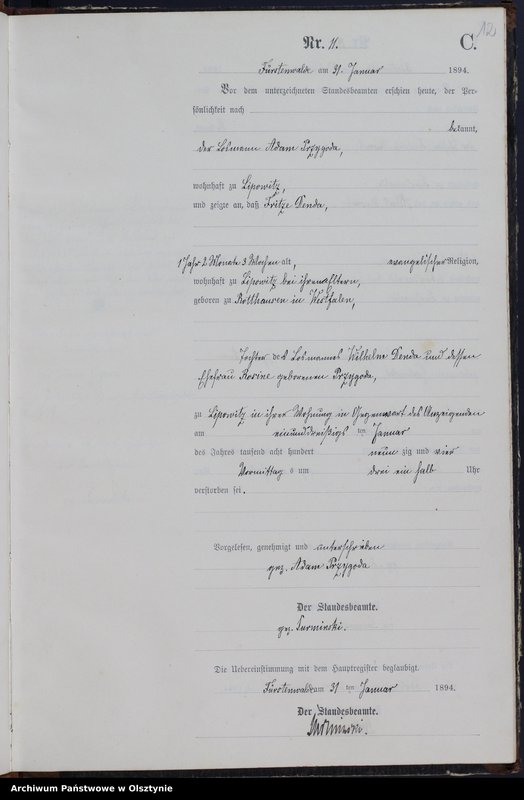 12
Nr. 11.
C.
Fürstenwalde am 31. Januar 1894.
Vor dem unterzeichneten Standesbeamten erschien heute, der Per-
sönlichkeit nach
bekannt,
der Losmann Adam Przygoda,
wohnhaft zu Lipowitz,
und zeigte an, daß Fritze Denda,
1 Jahr 2 Monate 3 Wochen alt, evangelischer Religion,
wohnhaft zu Lipowitz bei ihren Eltern,
geboren zu Rotthausen in Westfalen,
Tochter des Losmannes Wilhelm Denda und dessen
Ehefrau Rosine geborenen Przygoda,
zu Lipowitz in ihrer Wohnung in Gegenwart des Anzeigenden
am einunddreißigsten Januar
des Jahres tausend acht hundert neunzig und vier
Vormittags um drei ein halb Uhr
verstorben sei.
Vorgelesen, genehmigt und unterschrieben
gez. Adam Przygoda
Der Standesbeamte.
gez. Surminski.
Die Uebereinstimmung mit dem Hauptregister beglaubigt.
Fürstenwalde am 31ten Januar 1894.
Der Standesbeamte.
Surminski.
Archiwum Państwowe w Olsztynie